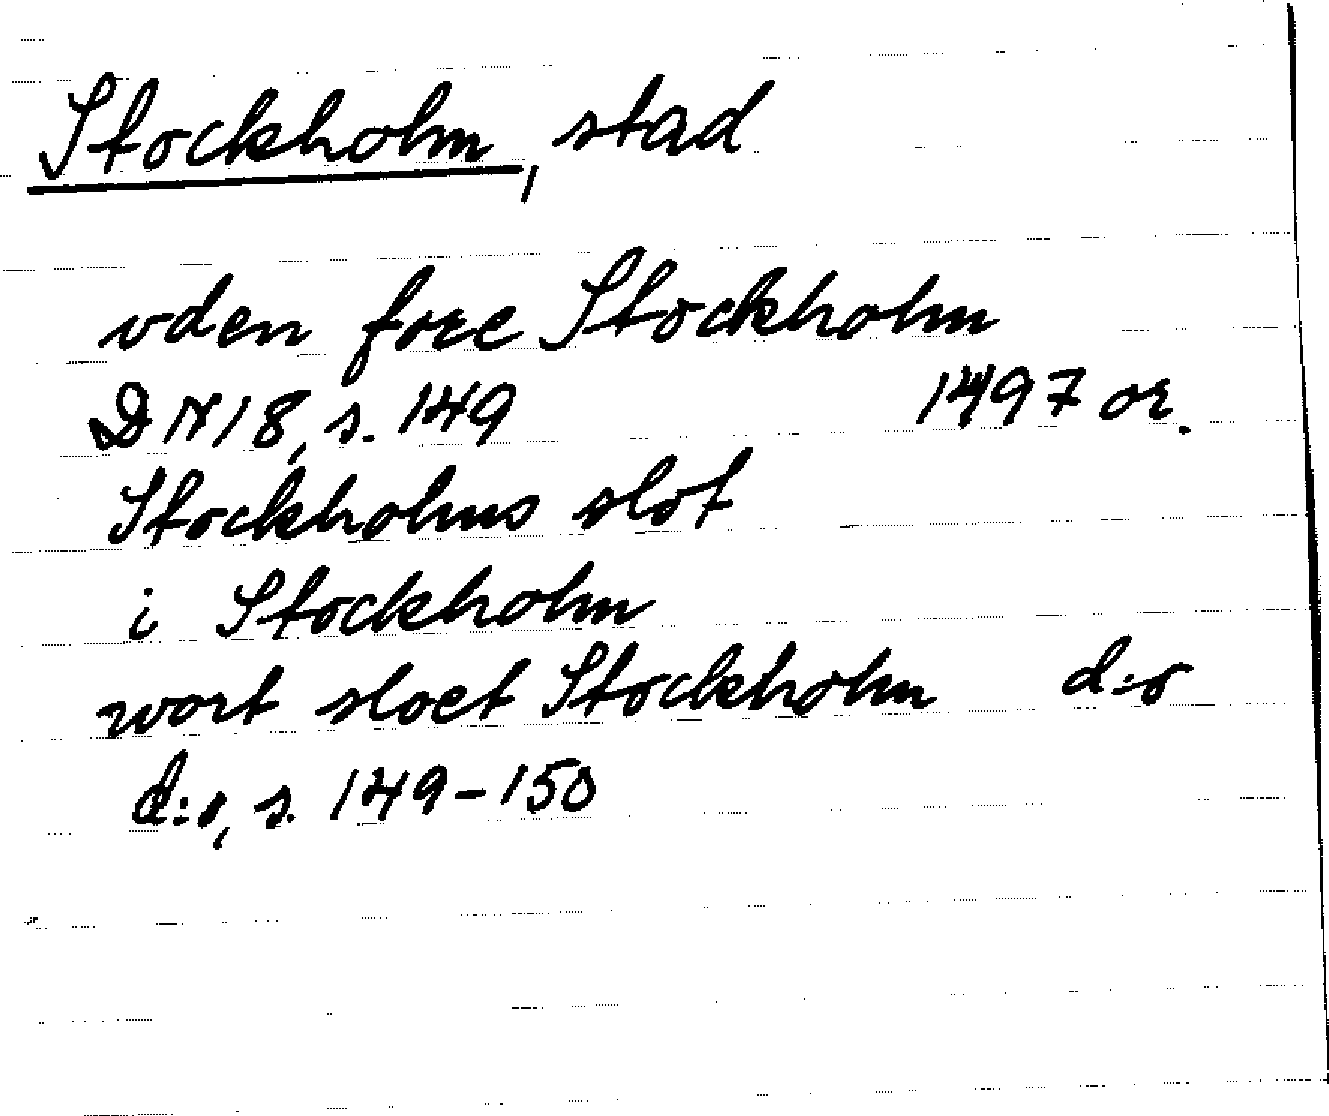 Stockholm, stad
vden fore Stockholm
DN 18, s. 149 1497 or.
Stockholms slot
i Stockholm
wort sloet Stockholm d:o
d:o, s. 149-150